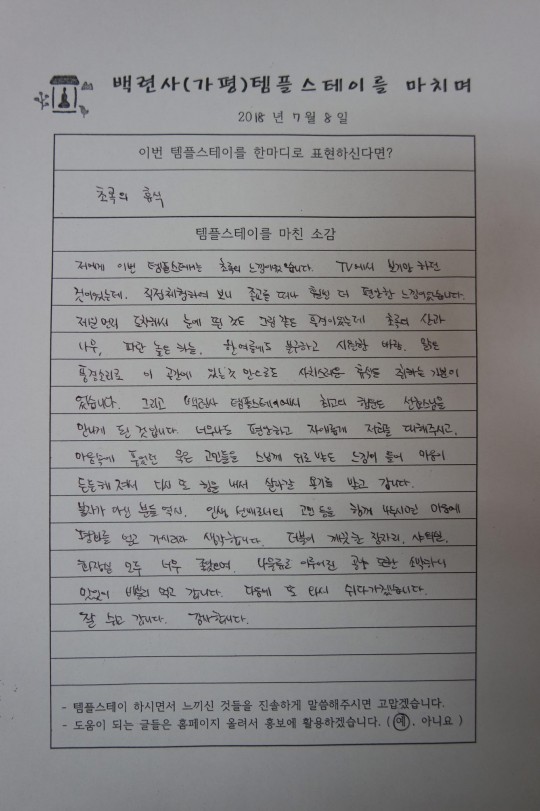 백련사(가평)템플스테이를 마치며
2018 년 7 월 8 일
이번 템플스테이를 한마디로 표현하신다면?
초록의 휴식
템플스테이를 마친 소감
저에게 이번 템플스테이는 초록의 느낌이었습니다. TV에서 보기만 하던
것이었는데, 직접체험하여 보니 종교를 떠나 훨씬 더 편안한 느낌이었습니다.
저런 먼의 도착해서 눈에 띈 것은 그림 같은 풍경이었는데 초록의 산과
나무, 파란 높은 하늘, 한여름에도 불구하고 시원한 바람, 맑은
풍경소리로 이 공간에 있는것 만으로도 사치스러운 휴식을 취하는 기분이
었습니다. 그리고 백련사 템플스테이에서 최고의 행운은 선업스님을
만나게 된 것입니다. 너무나도 편안하고 자애롭게 저희를 대해주시고,
마음속에 품었던 묵은 고민들을 스님께 위로 받은 느낌이 들어 마음이
든든해 져서 다시 또 힘을 내서 살아갈 용기를 받고 갑니다.
불자가 아닌 분들 역시, 인생 선배로서의 고민 등을 함께 나누시면 마음에
평화를 얻고 가시리라 생각합니다. 더불어 깨끗한 잠자리, 샤워실,
화장실 모두 너무 좋았으며, 나물류로 이루어진 공양 또한 소박하니
맛있어 배불리 먹고 갑니다. 다음에 또 와서 쉬다가겠습니다.
잘 쉬고 갑니다. 감사합니다.
- 템플스테이 하시면서 느끼신 것들을 진솔하게 말씀해주시면 고맙겠습니다.
- 도움이 되는 글들은 홈페이지 올려서 홍보에 활용하겠습니다. ( 예, 아니요 )